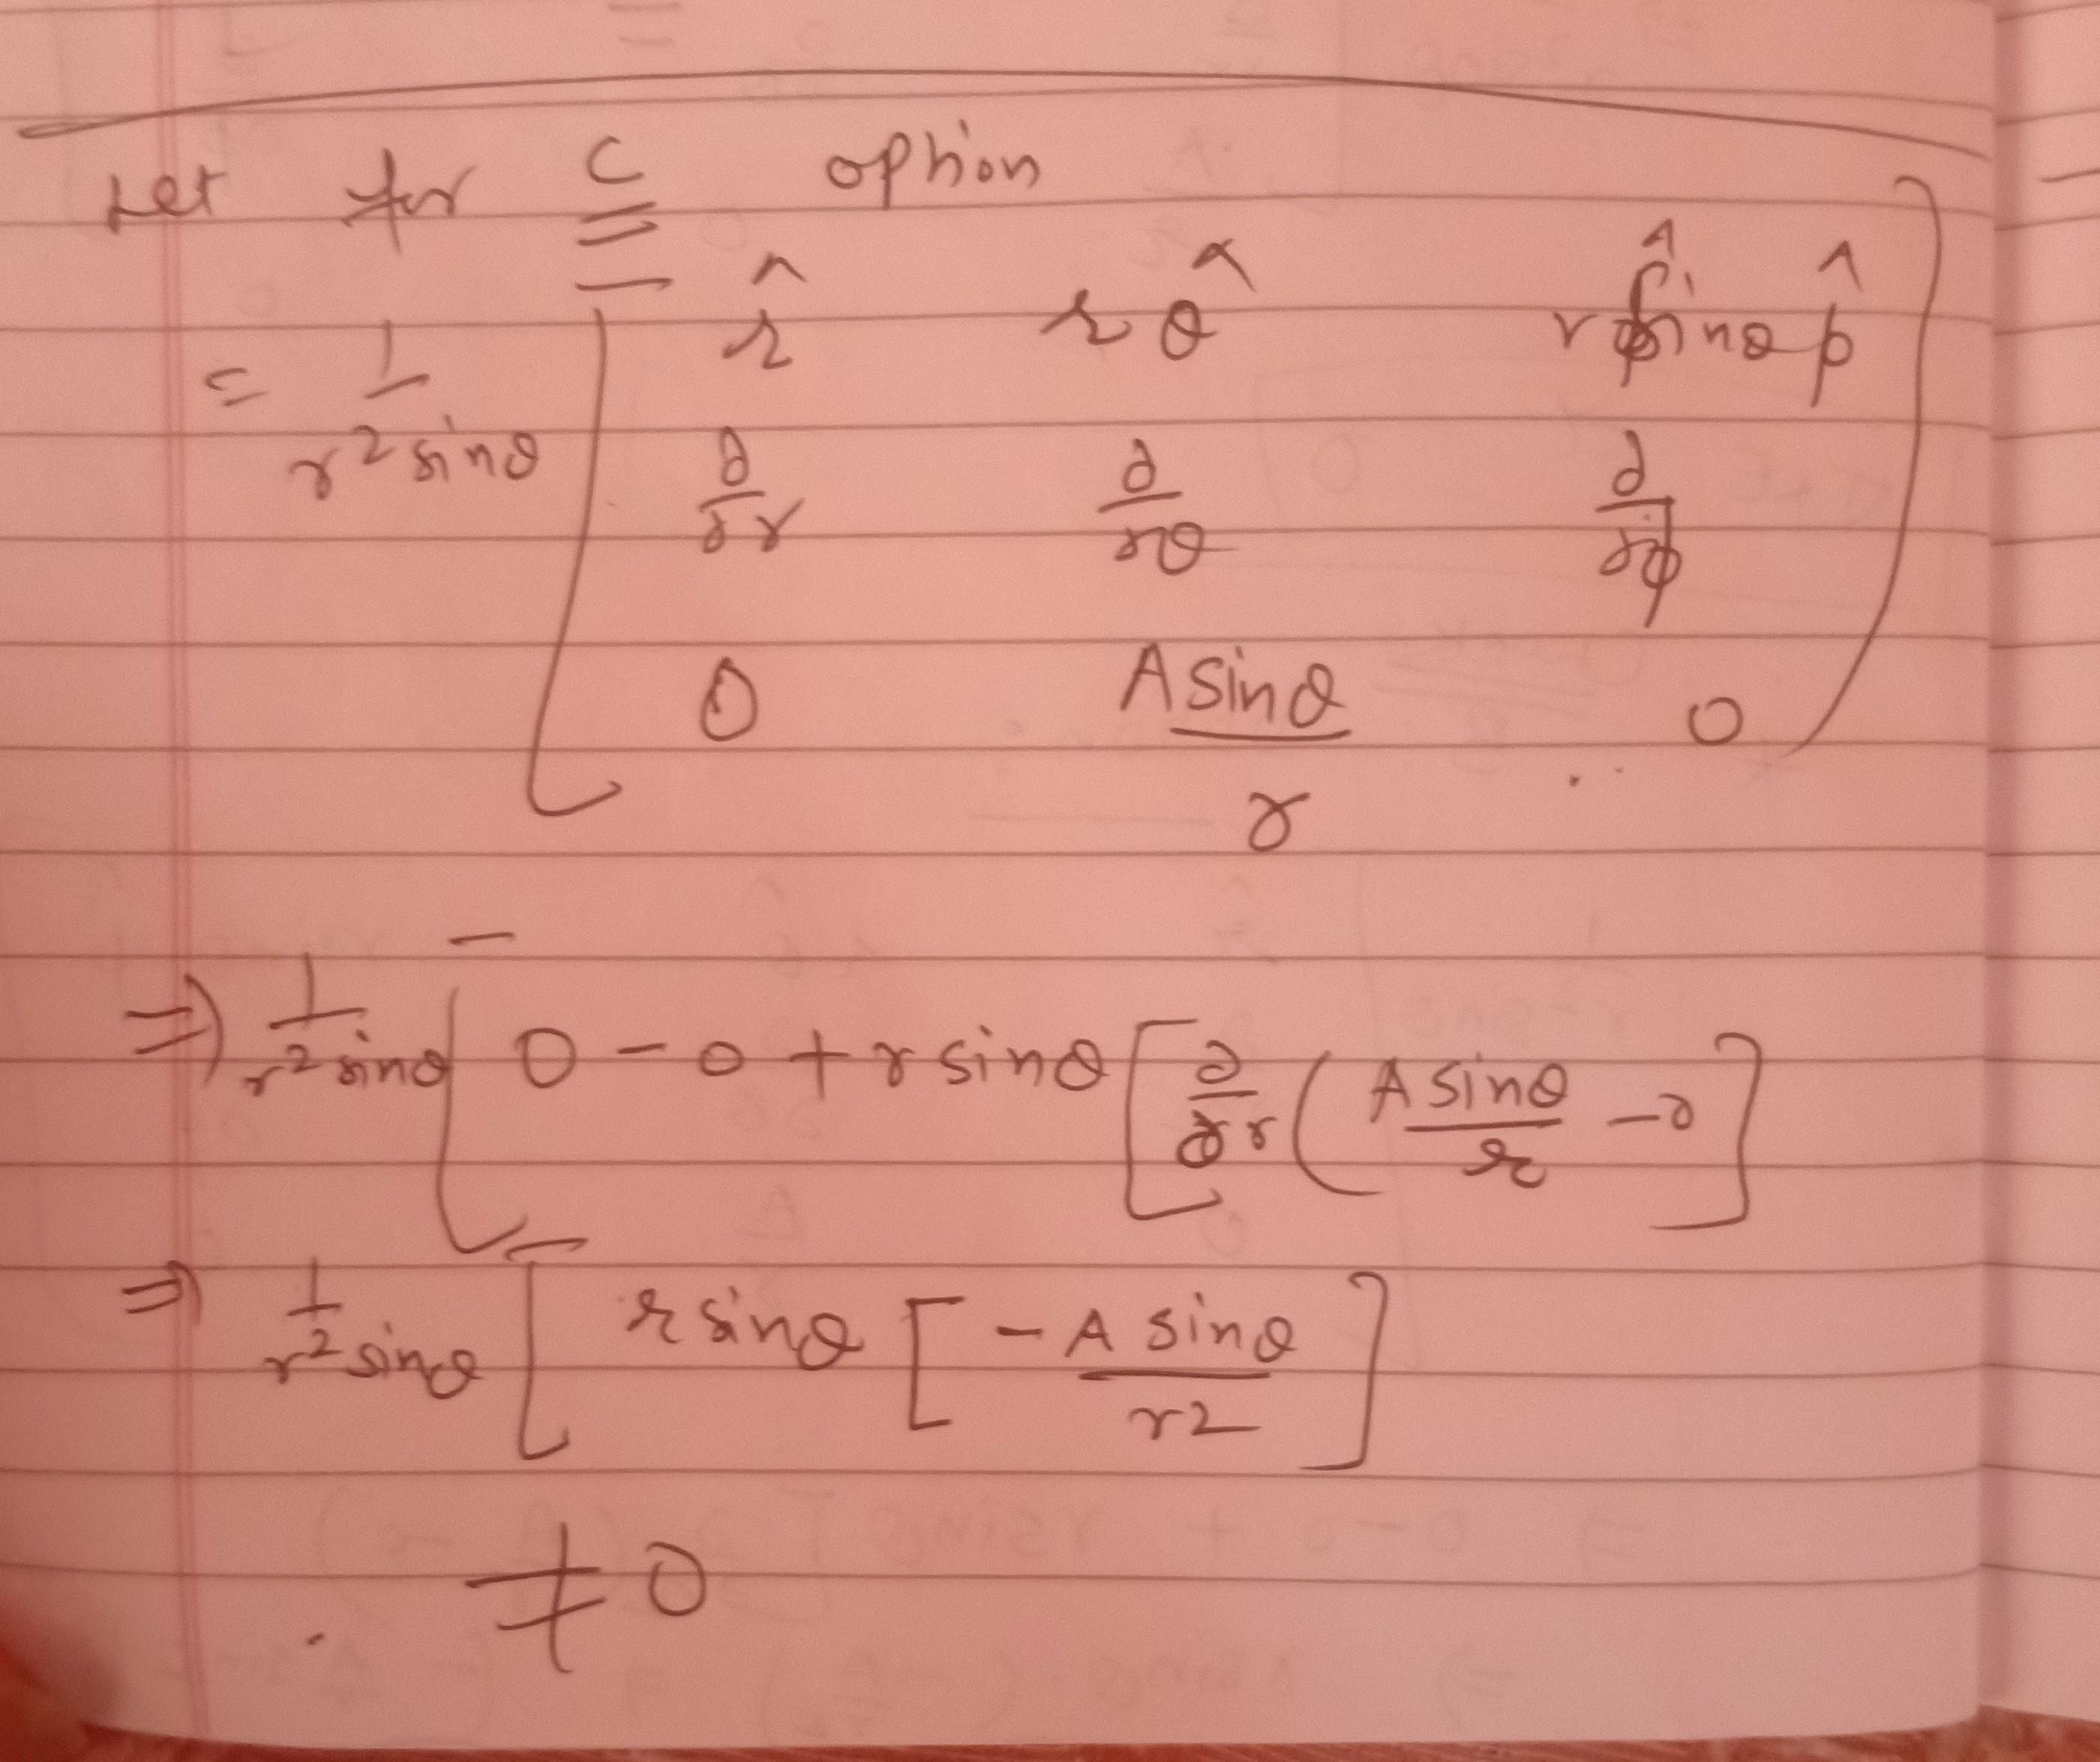 Let for C option
= 1/r² sinθ [ r̂ r θ̂ r sinθ φ̂
∂/∂r ∂/∂θ ∂/∂φ
0 A sinθ/r 0 )
⇒ 1/r² sinθ [ 0 - 0 + r sinθ [ ∂/∂r ( A sinθ/r - 0 ]
⇒ 1/r² sinθ [ r sinθ [ - A sinθ/r2 ]
≠ 0